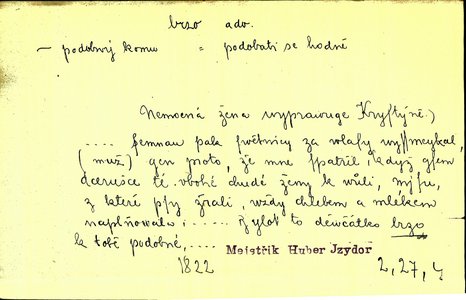 brzo adv.
— podobný komu = podobati se hodně
Nemocná žena wyprawuge Kryštýně:)
.... semnau pak swětnicy za wlasy wysmeykal,
(muž) gen proto, že mne spatřil, když gsem
dcerušce té vbohé chudé ženy k wůli, mísu,
z které psy žrali, wždy chlebem a mlékem
naplňowala; .... Bylot to děwčátko brzo
k tobě podobné, ..... Majstřík Huber Jzydor
1822 2, 27, 4